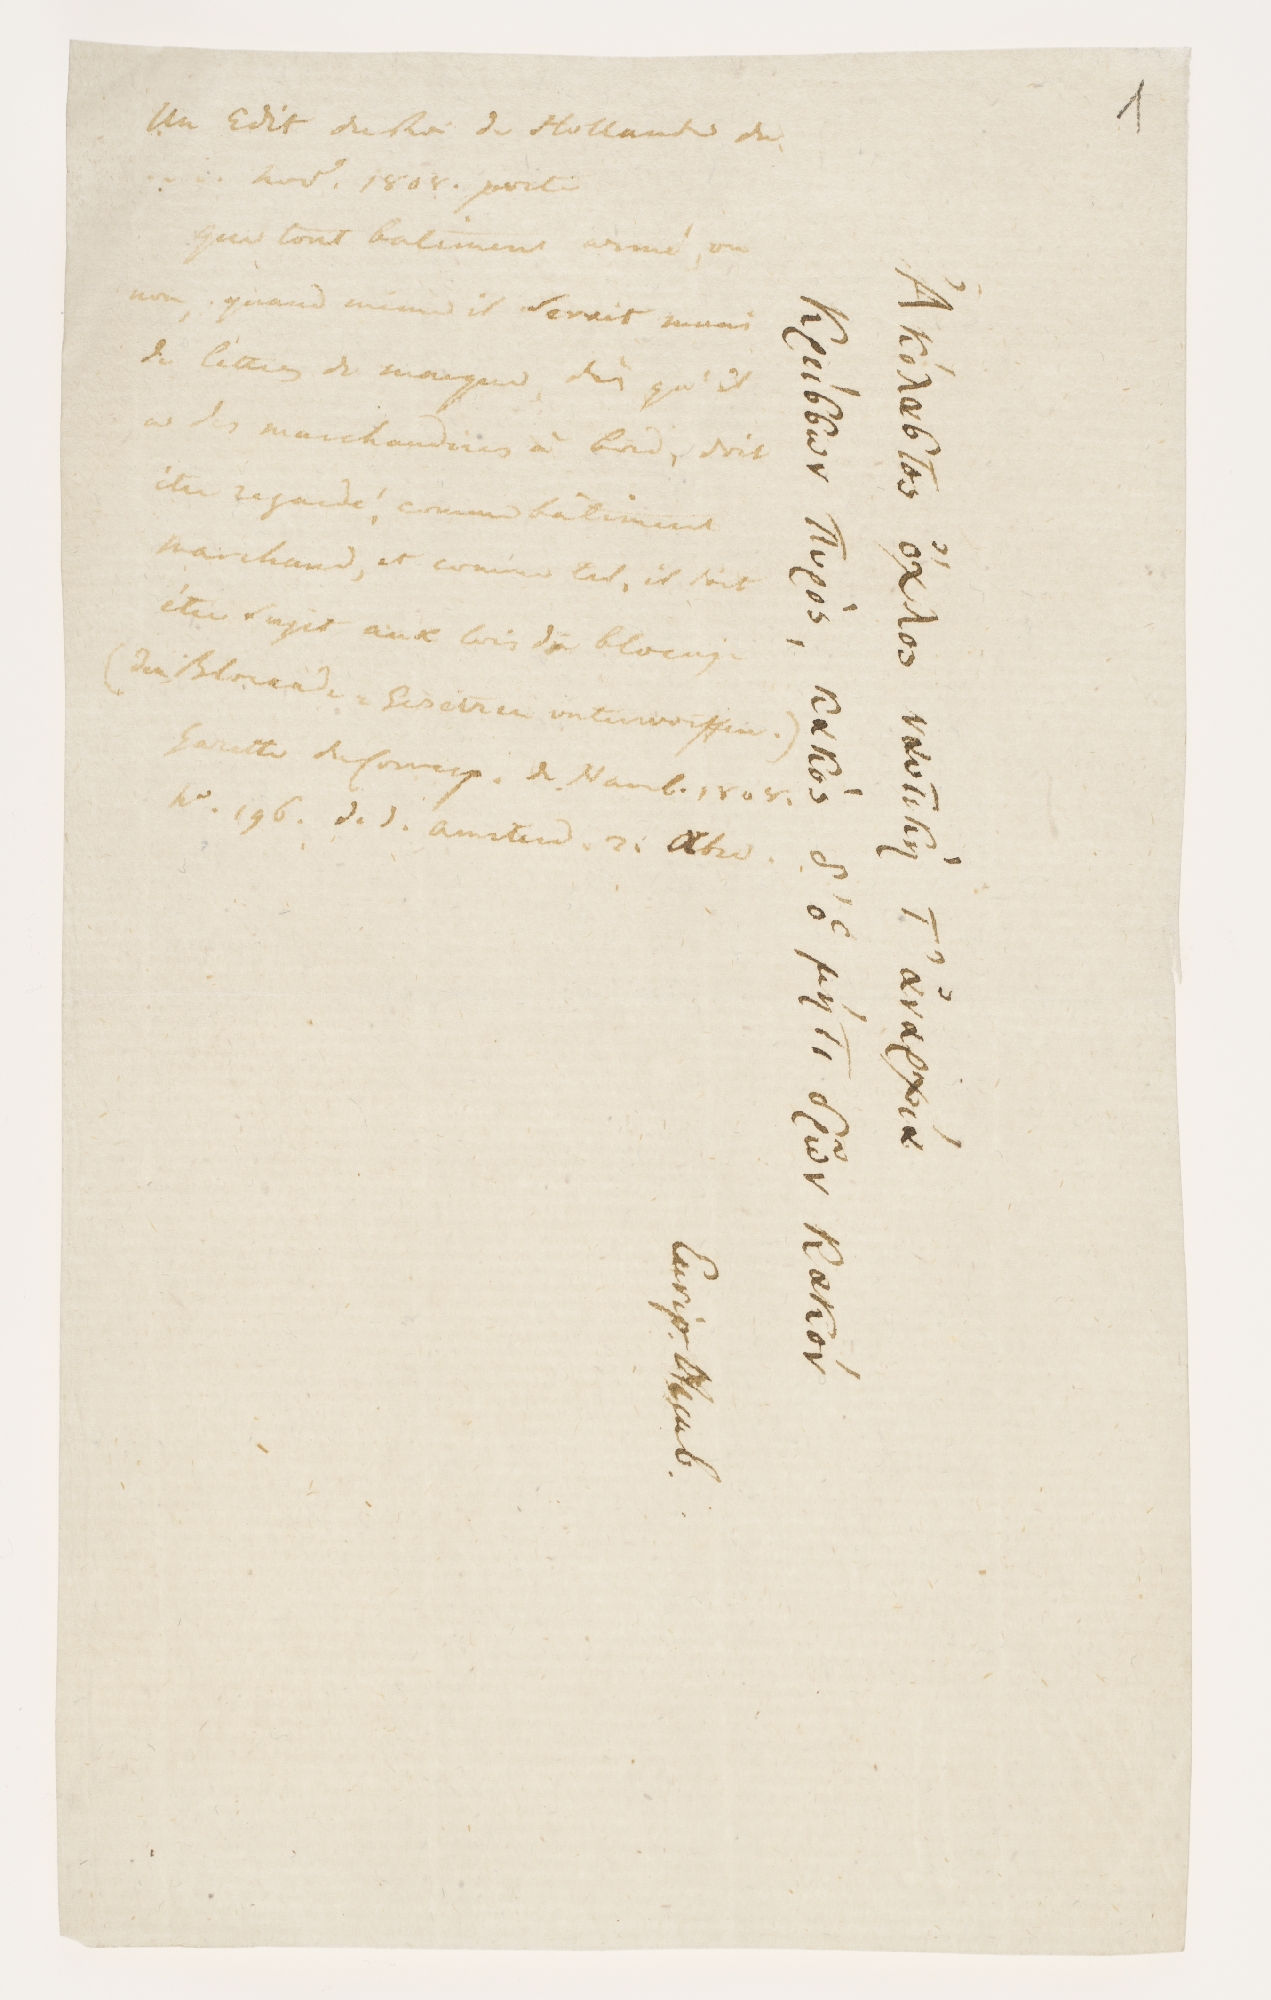 1
Un Edit du Roi de Hollande du
Novr. 1808. porte
que tout batiment armé, ou
non, quand même il serait muni
de lettres de marque, dès qu'il
a des marchandises à bord, doit
être regardé, comme bâtiment
marchand, et comme tel, il doit
être sujet aux lois du blocus
(den Blocade-Gesetzen unterworffen.)
Gazette de Corresp. de Hamb. 1808.
No. 196. d. d. Amsterd. 2.
Ἀκόλαστος ὄχλος ναυτική τ' ἀναρχία
Κρείσσων πυρός, κακός δ' ὁ μήτι δρῶν κακόν
Eurip. Hecub.